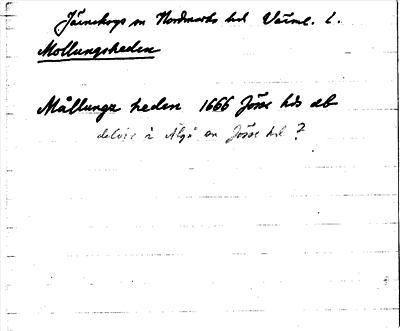 Järnskogs sn Nordmarks hd Värml. l.
Mollungsheden
Mållunga heden 1666 Jösse hds db
delvis i Älgå sn Jösse hd ?